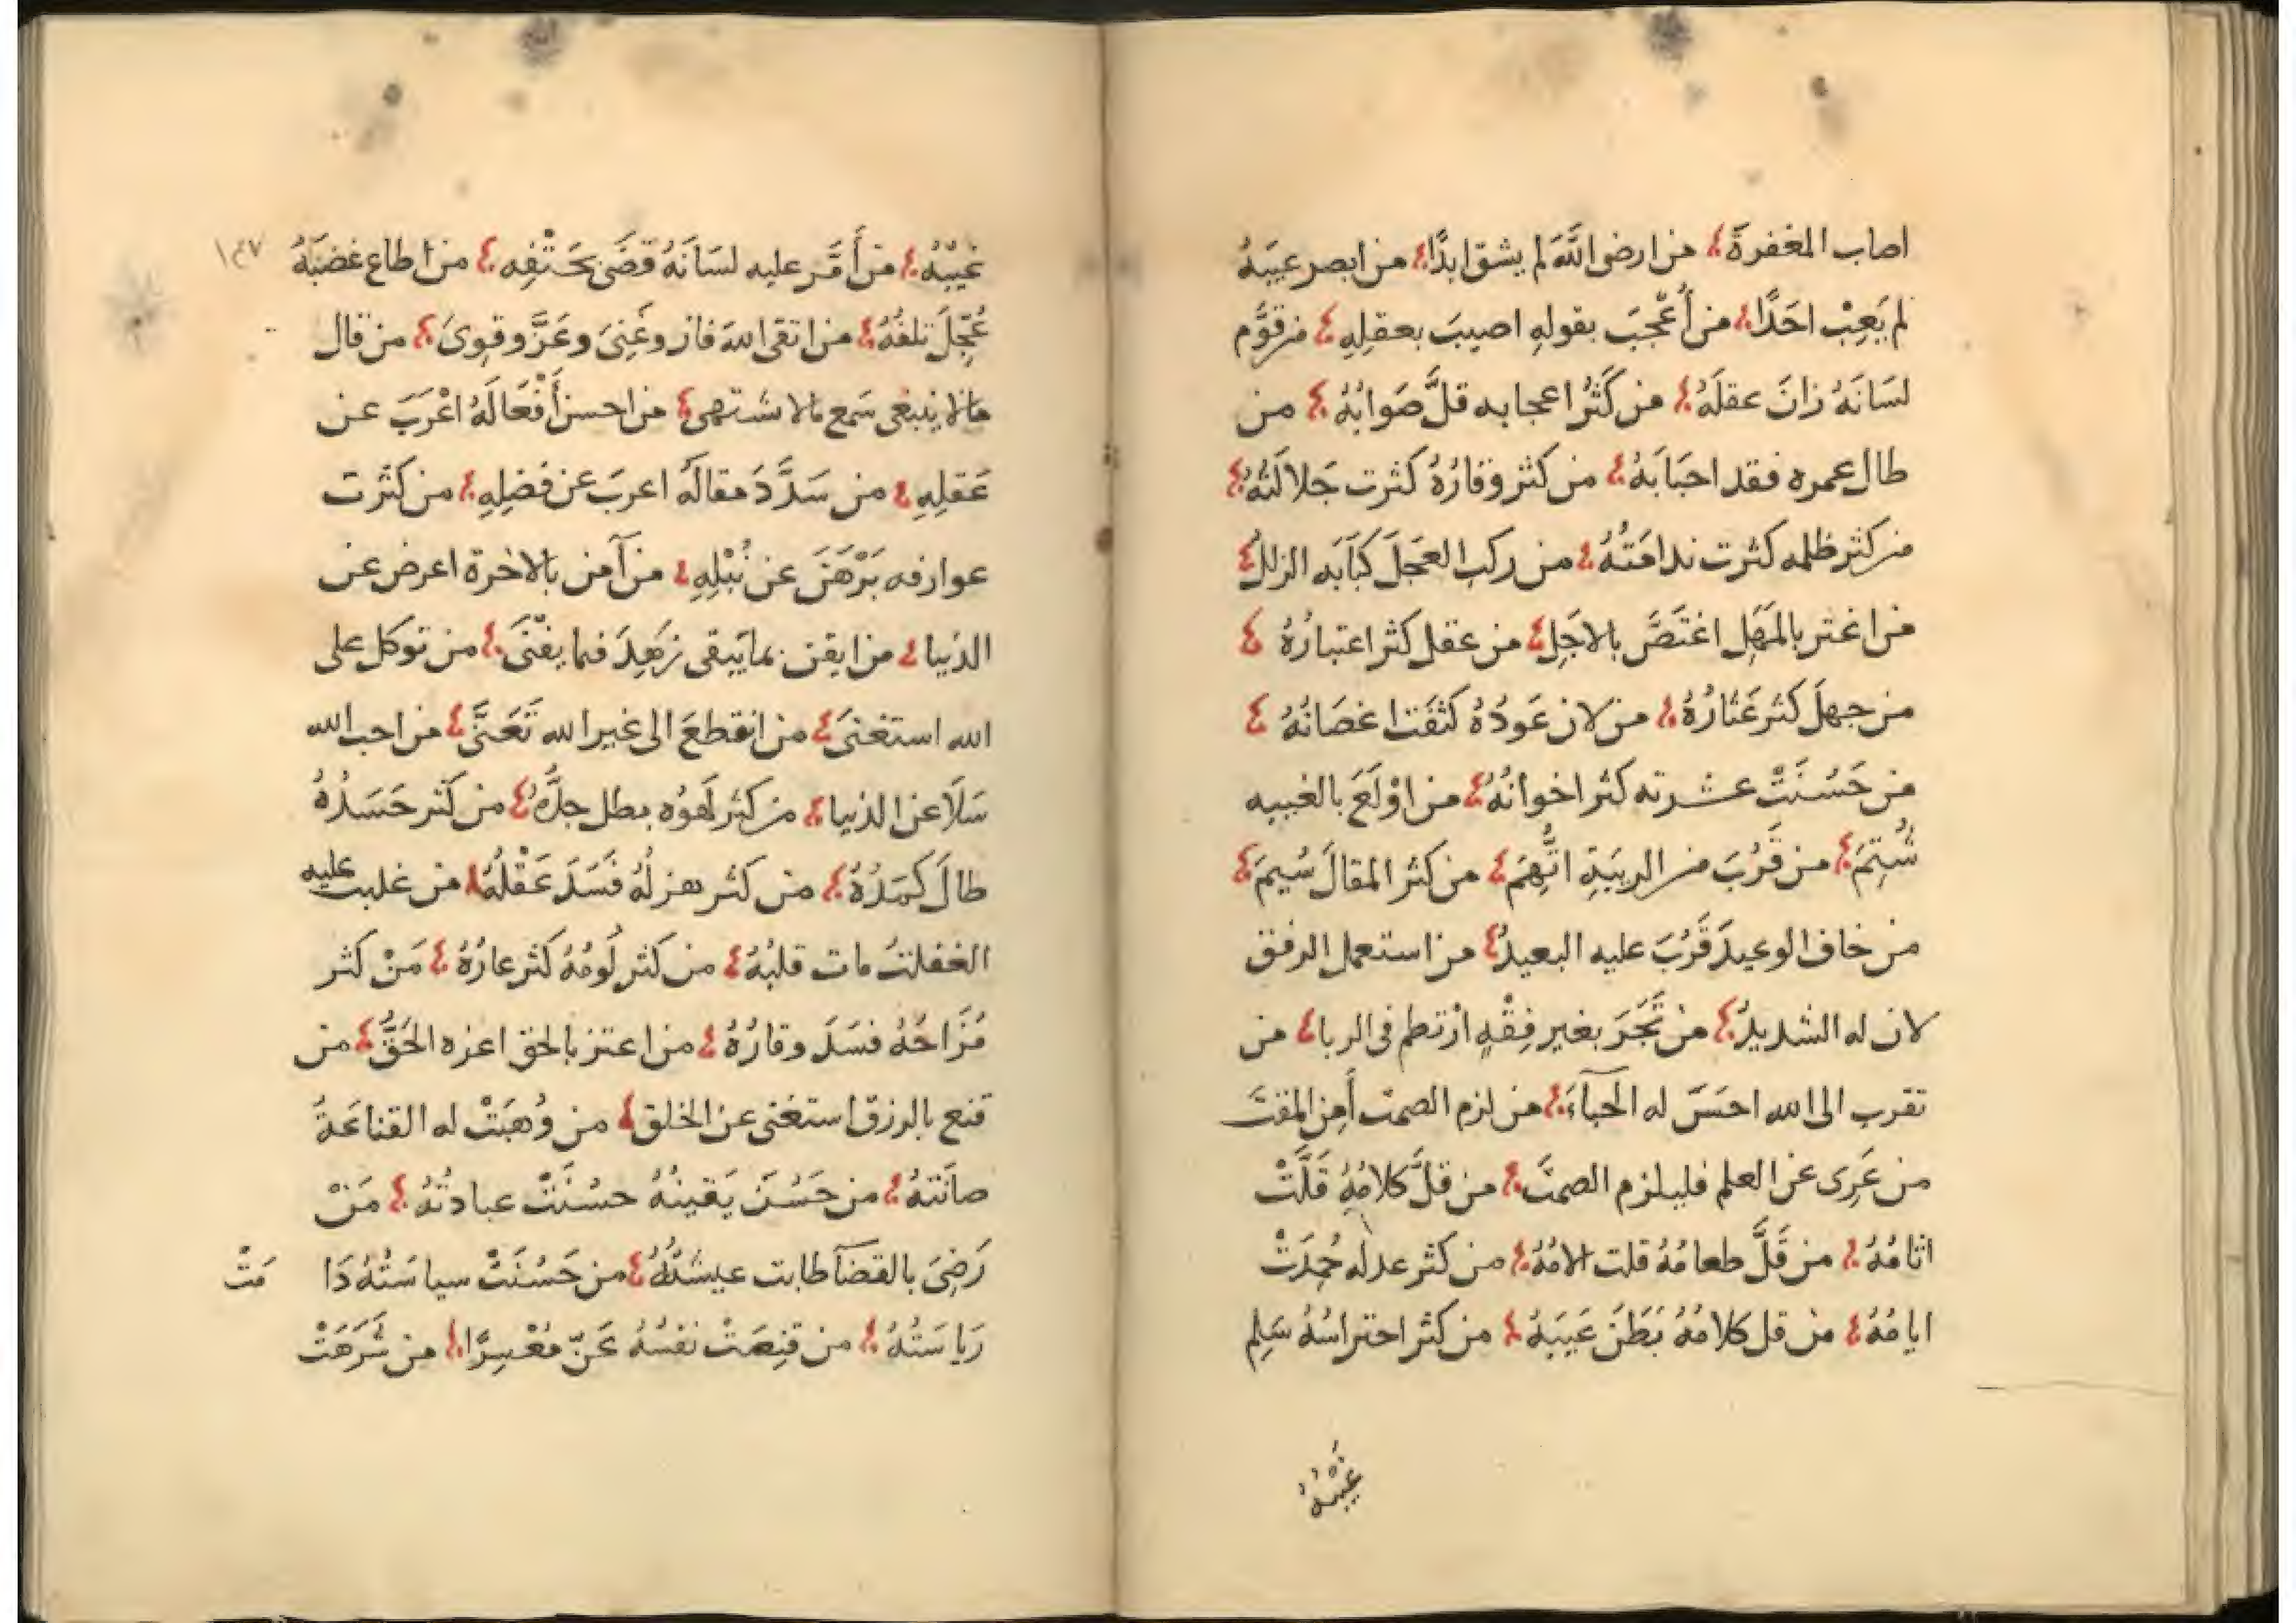 اصاب المغفرة من ارضى اللَّهَ لم يشق ابدًا من ابصر عيبَهُ
لم يَعِبْ احَدًا من أُعْجِبَ بقولهِ اصيبَ بعقلِهِ من قوَّم
لسَانَهُ زانَ عقلَهُ من كَثُرُ اعجابه قلَّ صَوابُهُ من
طال عمره فقد احبَابَهُ من كثر وقارُهُ كثرت جَلالَتُهُ
من كثر ظلمه كثرت ندامَتُهُ من ركب العجَلَ كبَابَه الزللُ
من اغتر بالمَهَلِ اغتَصَّ بالاجَلِ من عقل كثر اعتبارُهُ
من جهلَ كثر عَثارُهُ من لان عَودُهُ كثفَت اغصَانُهُ
من حَسُنَتْ عشرته كثر اخوانُهُ من اوْلَعَ بالغيبه
شُتِمَ من قَرُبَ من الريبَةِ اتُّهِمَ من كثر المقالَ سُيمَ
من خاف الوعيدَ قَرُبَ عليه البعيدُ من استعمل الرفق
لان له الشديدُ من تَّجَرَ بغير فِقْهٍ ارْتطم فى الربا من
تقرب الى الله احسَنَ له الحبآءَ من لزم الصمت أَمِن المقتَ
من عَرِىَ عن العلم فليلزم الصمتَ من قلَّ كلامُهُ قَلَّتْ
اثامُهُ من قَلَّ طعامُهُ قلت الامُهُ من كثر عدله حُمِدَتْ
ايامُهُ من قل كلامُهُ بَطَنَ عَيبَهُ من كثر احتراسُهُ سَلِم
غيبُهُ
١٤٧
غيبُهُ من أَمَّر عليه لسَانَهُ قضَى بحَتْفِه من اطاع غضَبَهُ
عُجِّلَ تلفُهُ من اتقى اللهَ فاز وغَنِىَ وعَزَّ وقوِىَ من قال
مالا ينبغى سَمع مالا يشتهى من احسن أَفْعَالَهُ اعْرَبَ عن
عَقلِهِ من سَدَّدَ مقالَهُ اعربَ عن فَضلِهِ من كثرت
عوارفه بَرْهَنَ عن نُبْلِهِ من آمن بالاخرة اعرض عن
الدنيا من ايقن بما يَبقى زهِدَ فما يفْنَى من توكل على
الله استغنىَ من انقطعَ الى غير الله تَعَنَّى من احب الله
سَلَا عن الدنيا من كثر لَهوُه بطل جدُّهُ من كثر حَسَدُهُ
طالَ كَمَدُهُ من كثر هزلُهُ فَسَدَ عَقْلُهُ من غلبت عليه
الغفلتُ مات قلبُهُ من كثر لُومُهُ كثر عارُهُ مَنْ كثر
مُزَاحُهُ فسَدَ وقارُهُ من اعتز بالحق اعزه الحَقُّ من
قنع بالرزق استغنى عن الخلق من وُهبَتْ له القناعَةُ
صانَتهُ من حَسُنَ يَقينُهُ حسُنَتْ عبادتُهُ مَنْ
رَضِىَ بالقضآ طابت عيشَتُهُ من حَسُنَتْ سياسَتُهُ دَا مَتْ
رَياسَتُهُ من قنِعَتْ نفسُهُ عَزّ مُعْسِرًا من شَرَهَتْ